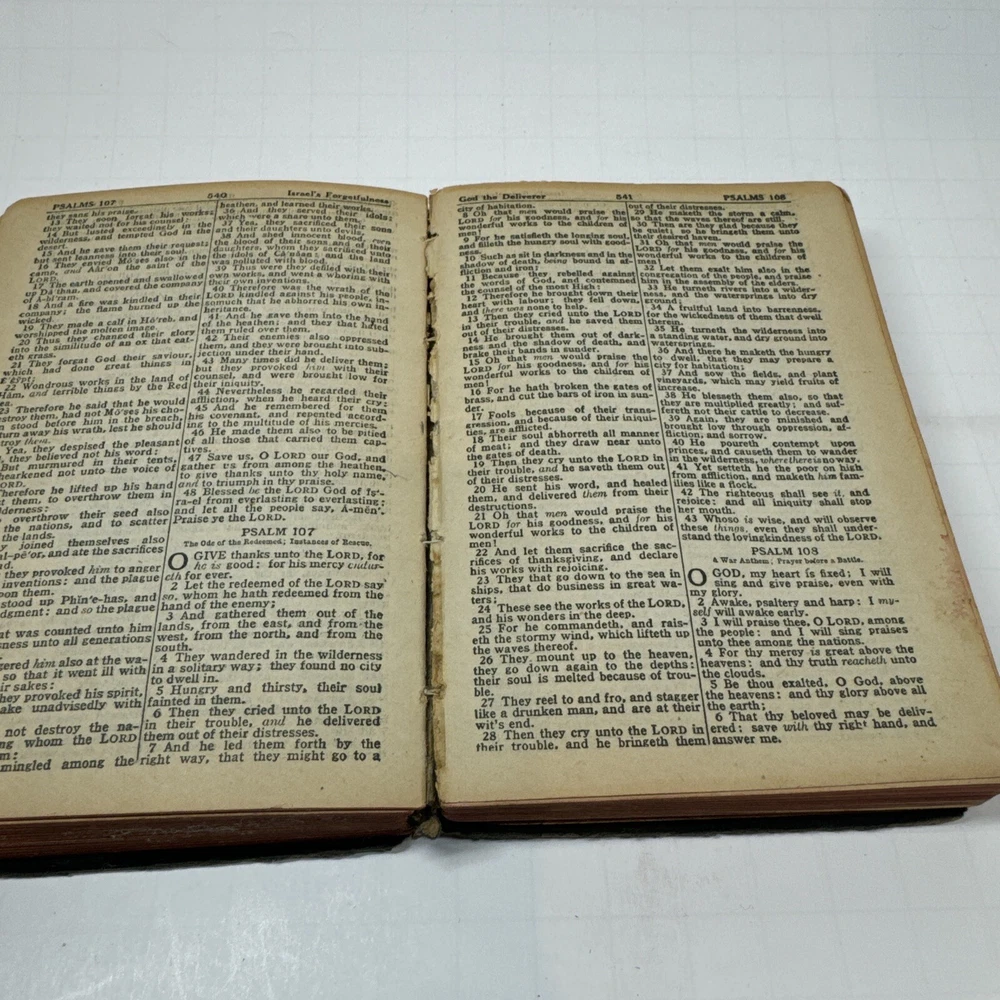 PSALMS 107 540 Israel's Forgetfulness
they sang his praise.
13 They soon forgat his works
they waited not for his counsel:
14 But lusted exceedingly in the
wilderness, and tempted God in the
desert.
15 And he gave them their request;
but sent leanness into their soul.
16 They envied Mō'ṣes also in the
camp, and Aâr'on the saint of the
LORD.
17 The earth opened and swallowed
up Dā'than, and covered the company
of A-bī'ram.
18 And a fire was kindled in their
company; the flame burned up the
wicked.
19 They made a calf in Hō'reb, and
worshipped the molten image.
20 Thus they changed their glory
into the similitude of an ox that eat-
eth grass.
21 They forgat God their saviour,
which had done great things in
E'ġypt;
22 Wondrous works in the land of
Hăm, and terrible things by the Red
ea.
23 Therefore he said that he would
stroy them, had not Mō'ṣes his cho-
n stood before him in the breach,
turn away his wrath, lest he should
troy them.
Yea, they despised the pleasant
d, they believed not his word:
But murmured in their tents,
hearkened not unto the voice of
ORD.
Therefore he lifted up his hand
st them, to overthrow them in
lderness:
overthrow their seed also
the nations, and to scatter
the lands.
y joined themselves also
al-pē'or, and ate the sacrifices
ad.
they provoked him to anger
inventions: and the plague
pon them.
stood up Phĭn'e-has, and
dgment: and so the plague
at was counted unto him
sness unto all generations
gered him also at the wa-
so that it went ill with
ir sakes:
hey provoked his spirit,
ake unadvisedly with
not destroy the na-
ng whom the LORD
m:
mingled among the
heathen, and learned their works.
36 And they served their idols:
which were a snare unto them.
37 Yea, they sacrificed their sons
and their daughters unto devils,
38 And shed innocent blood, even
the blood of their sons and of their
daughters, whom they sacrificed unto
the idols of Cā'năan: and the land
was polluted with blood.
39 Thus were they defiled with their
own works, and went a whoring with
their own inventions.
40 Therefore was the wrath of the
LORD kindled against his people, in-
somuch that he abhorred his own in-
heritance.
41 And he gave them into the hand
of the heathen; and they that hated
them ruled over them.
42 Their enemies also oppressed
them, and they were brought into sub-
jection under their hand.
43 Many times did he deliver them;
but they provoked him with their
counsel, and were brought low for
their iniquity.
44 Nevertheless he regarded their
affliction, when he heard their cry:
45 And he remembered for them
his covenant, and repented accord-
ing to the multitude of his mercies.
46 He made them also to be pitied
of all those that carried them cap-
tives.
47 Save us, O LORD our God, and
gather us from among the heathen,
to give thanks unto thy holy name,
and to triumph in thy praise.
48 Blessed be the LORD God of Iṣ'-
ra-el from everlasting to everlasting:
and let all the people say, Ā-mĕn'.
Praise ye the LORD.
PSALM 107
The Ode of the Redeemed; Instances of Rescue.
O GIVE thanks unto the LORD, for
he is good: for his mercy endur-
eth for ever.
2 Let the redeemed of the LORD say
so, whom he hath redeemed from the
hand of the enemy;
3 And gathered them out of the
lands, from the east, and from the
west, from the north, and from the
south.
4 They wandered in the wilderness
in a solitary way; they found no city
to dwell in.
5 Hungry and thirsty, their soul
fainted in them.
6 Then they cried unto the LORD
in their trouble, and he delivered
them out of their distresses.
7 And he led them forth by the
right way, that they might go to a
God the Deliverer 541 PSALMS 108
city of habitation.
8 Oh that men would praise the
LORD for his goodness, and for his
wonderful works to the children of
men!
9 For he satisfieth the longing soul,
and filleth the hungry soul with good-
ness.
10 Such as sit in darkness and in the
shadow of death, being bound in af-
fliction and iron;
11 Because they rebelled against
the words of God, and contemned
the counsel of the most High:
12 Therefore he brought down their
heart with labour; they fell down,
and there was none to help.
13 Then they cried unto the LORD
in their trouble, and he saved them
out of their distresses.
14 He brought them out of dark-
ness and the shadow of death, and
brake their bands in sunder.
15 Oh that men would praise the
LORD for his goodness, and for his
wonderful works to the children of
men!
16 For he hath broken the gates of
brass, and cut the bars of iron in sun-
der.
17 Fools because of their trans-
gression, and because of their iniqui-
ties, are afflicted.
18 Their soul abhorreth all manner
of meat; and they draw near unto
the gates of death.
19 Then they cry unto the LORD in
their trouble, and he saveth them out
of their distresses.
20 He sent his word, and healed
them, and delivered them from their
destructions.
21 Oh that men would praise the
LORD for his goodness, and for his
wonderful works to the children of
men!
22 And let them sacrifice the sac-
rifices of thanksgiving, and declare
his works with rejoicing.
23 They that go down to the sea in
ships, that do business in great wa-
ters;
24 These see the works of the LORD,
and his wonders in the deep.
25 For he commandeth, and rais-
eth the stormy wind, which lifteth up
the waves thereof.
26 They mount up to the heaven,
they go down again to the depths:
their soul is melted because of trou-
ble.
27 They reel to and fro, and stagger
like a drunken man, and are at their
wit's end.
28 Then they cry unto the LORD in
their trouble, and he bringeth them
out of their distresses.
29 He maketh the storm a calm,
so that the waves thereof are still.
30 Then are they glad because they
be quiet; so he bringeth them unto
their desired haven.
31 Oh that men would praise the
LORD for his goodness, and for his
wonderful works to the children of
men!
32 Let them exalt him also in the
congregation of the people, and praise
him in the assembly of the elders.
33 He turneth rivers into a wilder-
ness, and the watersprings into dry
ground;
34 A fruitful land into barrenness,
for the wickedness of them that dwell
therein.
35 He turneth the wilderness into
a standing water, and dry ground into
watersprings.
36 And there he maketh the hungry
to dwell, that they may prepare a
city for habitation;
37 And sow the fields, and plant
vineyards, which may yield fruits of
increase.
38 He blesseth them also, so that
they are multiplied greatly; and suf-
fereth not their cattle to decrease.
39 Again, they are minished and
brought low through oppression, af-
fliction, and sorrow.
40 He poureth contempt upon
princes, and causeth them to wander
in the wilderness, where there is no way.
41 Yet setteth he the poor on high
from affliction, and maketh him fam-
ilies like a flock.
42 The righteous shall see it, and
rejoice: and all iniquity shall stop
her mouth.
43 Whoso is wise, and will observe
these things, even they shall under-
stand the lovingkindness of the LORD.
PSALM 108
A War Anthem; Prayer before a Battle.
O GOD, my heart is fixed; I will
sing and give praise, even with
my glory.
2 Awake, psaltery and harp: I my-
self will awake early.
3 I will praise thee, O LORD, among
the people: and I will sing praises
unto thee among the nations.
4 For thy mercy is great above the
heavens: and thy truth reacheth unto
the clouds.
5 Be thou exalted, O God, above
the heavens: and thy glory above all
the earth;
6 That thy beloved may be deliv-
ered: save with thy right hand, and
answer me.